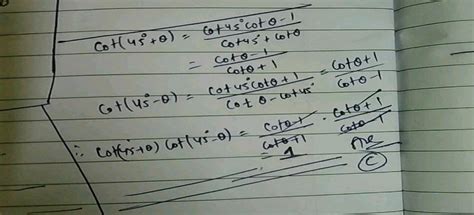 cot(45°+θ) = cot45°cotθ-1 / cot45°+cotθ
= cotθ-1 / cotθ+1
cot(45°-θ) = cot45°cotθ+1 / cotθ-cot45° = cotθ+1 / cotθ-1
∴ cot(45°+θ) cot(45°-θ) = cotθ-1 / cotθ+1 · cotθ+1 / cotθ-1
= 1 Ans
(C)